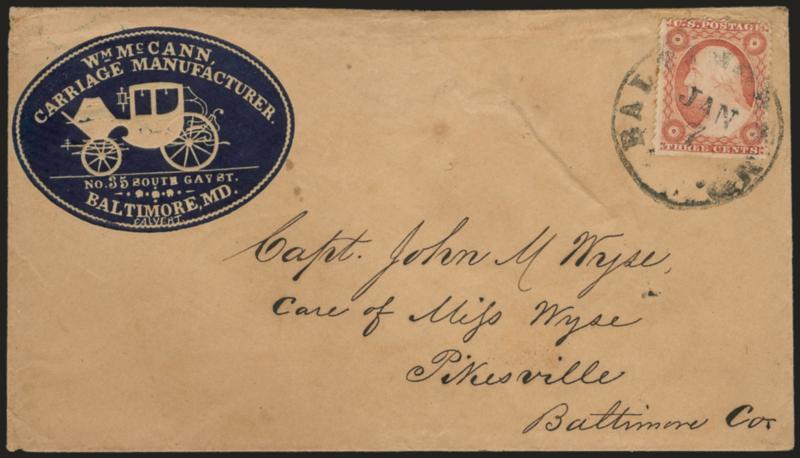 Wᴹ MᶜCANN,
CARRIAGE MANUFACTURER.
NO. 35 SOUTH GAY ST.
BALTIMORE, MD.
CALVERT.
U.S. POSTAGE
THREE CENTS
JAN
Capt. John M Wyse,
Care of Miſs Wyse
Pikesville
Baltimore Co.